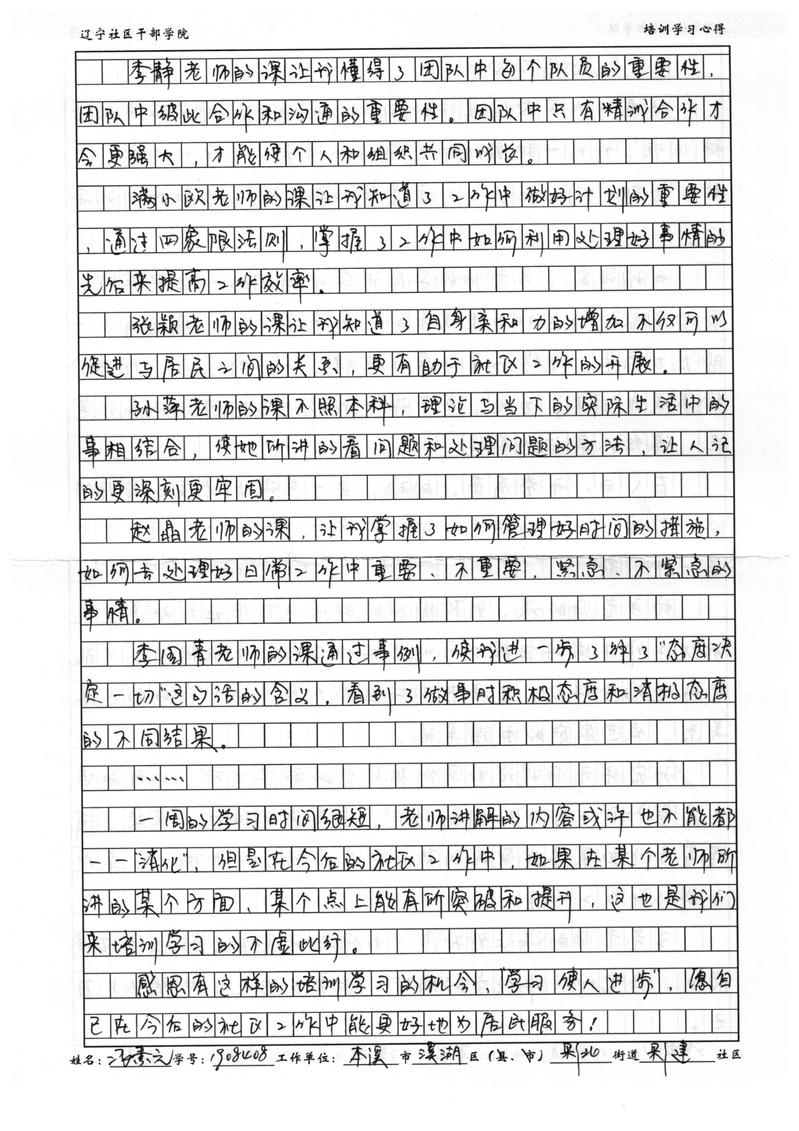 辽宁社区干部学院 培训学习心得
李静老师的课让我懂得了团队中每个队员的重要性，
团队中彼此合作和沟通的重要性。团队中只有精诚合作才
会更强大，才能使个人和组织共同成长。
满小欧老师的课让我知道了工作中做好计划的重要性
，通过四象限法则，掌握了工作中如何利用处理好事情的
先后来提高工作效率。
张颖老师的课让我知道了自身亲和力的增加不仅可以
促进与居民之间的关系，更有助于社区工作的开展。
孙萍老师的课不照本科，理论与当下的实际生活中的
事相结合，使她所讲的看问题和处理问题的方法，让人记
的更深刻更牢固。
赵晶老师的课，让我掌握了如何管理好时间的措施，
如何去处理好日常工作中重要、不重要，紧急、不紧急的
事情。
李国青老师的课通过事例，使我进一步了解了“态度决
定一切”这句话的含义，看到了做事时积极态度和消极态度
的不同结果。
……
一周的学习时间很短，老师讲解的内容或许也不能都
一一“消化”，但是在今后的社区工作中，如果在某个老师所
讲的某个方面、某个点上能有所突破和提升，这也是我们
来培训学习的不虚此行。
感恩有这样的培训学习的机会，“学习使人进步”，愿自
己在今后的社区工作中能更好地为居民服务！
姓名： 学号：1908408 工作单位：本溪市溪湖区（县、市）果北街道果建社区